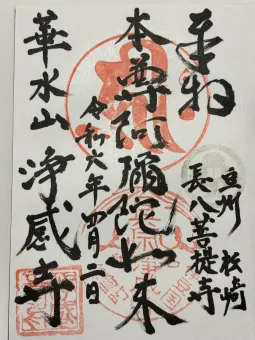 奉拝
豆州 松崎
長八菩提寺
本尊阿彌陀如来
令和六年四月二日
華水山 浄感寺